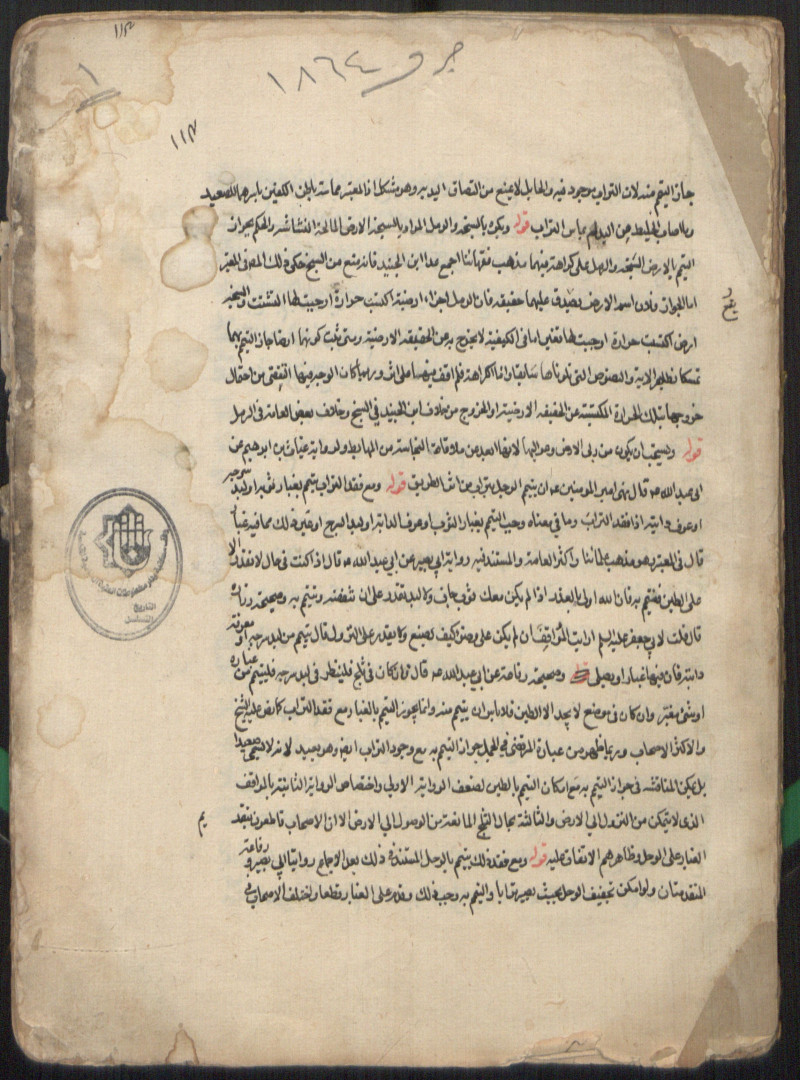 ١١٣
١
جزو ١٨٦٤
١١٣
جاز التيمم منه لان التراب موجود فيه والحايل لا يمنع من التصاق اليد به وهو مشكل اذ المعتبر مماسة باطن الكفين باسرهما للصعيد
وما اصاب الخليط من اليد لم يماس التراب قوله ويكره بالسبخة والرمل المراد بالسبخة الارض المالحة النشاشة والحكم بجواز
التيمم بالارض السبخة والرمل على كراهة فيهما مذهب فقهائنا اجمع عدا ابن الجنيد فانه منع من السبخ حكى ذلك المص في المعتبر
اما الجواز فلان اسم الارض يصدق عليهما حقيقة فان الرمل اجزاء ارضية اكتسب حرارة اوجبت لها التشتت والسبخة
ارض اكتسبت حرارة اوجبت لها تغيرا ما في الكيفية لا يخرج به عن الحقيقة الارضية ومتى ثبت كونها ارضا جاز التيمم بهما
تمسكا بظاهر الاية والنصوص التي تلوناها سابقا واما الكراهة فلم اقف فيها على اثر وربما كان الوجه فيها التفصي من احتمال
خروجها بتلك الحرارة المكتسبة عن الحقيقة الارضية او الخروج من خلاف ابن الجنيد في السبخ وخلاف بعض العامة في الرمل
قوله ويستحب ان يكون من ربى الارض وعواليها لانها ابعد من ملاقاة النجاسة من المهابط ولرواية غياث بن ابراهيم عن
ابي عبد الله ع قال نهى امير المؤمنين ع ان يتيمم الرجل بتراب من اثر الطريق قوله ومع فقد التراب يتيمم بغبار ثوبه او لبد سرجه
او عرف دابته اذا فقد التراب وما في معناه وجب التيمم بغبار الثوب او عرف الدابة او لبد السرج او غير ذلك مما فيه غبار
قال في المعتبر وهو مذهب علمائنا واكثر العامة والمستند فيه رواية ابي بصير عن ابي عبد الله ع قال اذا كنت في حال لا تقدر الا
على الطين فتيمم به فان الله اولى بالعذر اذا لم يكن معك ثوب جاف ولا لبد تقدر على ان تنفضه وتتيمم به وصحيحة زرارة
قال قلت لابي جعفر عليه السلم ارايت المواقف ان لم يكن على وضوء كيف يصنع ولا يقدر على النزول قال تيمم من لبد سرجه او معرفة
دابته فان فيها غبارا ويصلي وصحيحة رفاعة عن ابي عبد الله ع قال فان كان في ثلج فلينظر في لبد سرجه فليتيمم من غباره
او شئ مغبر وان كان في موضع لا يجد الا الطين فلا باس ان يتيمم منه وانما يجوز التيمم بالغبار مع فقد التراب كما نص عليه الشيخ
والاكثر الاصحاب وربما ظهر من عبارة المرتضى في الجمل جواز التيمم به مع وجود التراب ايضا وهو بعيد لانه لا يسمى صعيدا
بل يمكن المناقشة في جواز التيمم به مع امكان التيمم بالطين لضعف الرواية الاولى واختصاص الرواية الثانية بالمواقف
الذي لا يتمكن من النزول الى الارض والثالثة بحال الثلج المانعة من الوصول الى الارض الا ان الاصحاب قاطعون بتقديم
الغبار على الوحل وظاهرهم الاتفاق عليه قوله ومع فقد ذلك يتيمم بالوحل المستند في ذلك بعد الاجماع روايتا ابي بصير ورفاعة
المتقدمتان ولو امكن تجفيف الوحل بحيث يصير ترابا والتيمم به وجب ذلك وقدم على الغبار قطعا واختلف الاصحاب في
التاريخ
التسلسل